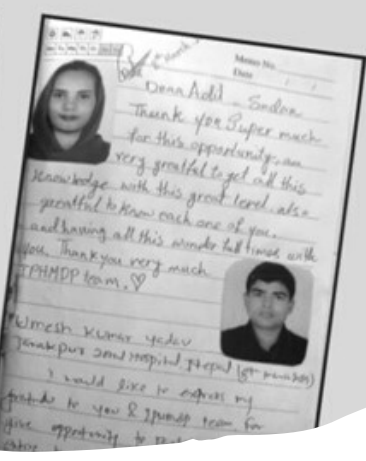 Memo No.
Date
Doaa Adil - Sudan
Thank you Super much
for this opportunity, am
very greatful to get all this
knowledge with this great level. also
greatful to know each one of you.
and having all this wonder full times with
you. Thank you very much
IPHMDP team. ♡
Umesh Kumar yadav
Janakpur Hospital, Nepal
I would like to express my
to you & team for
give opportunity to